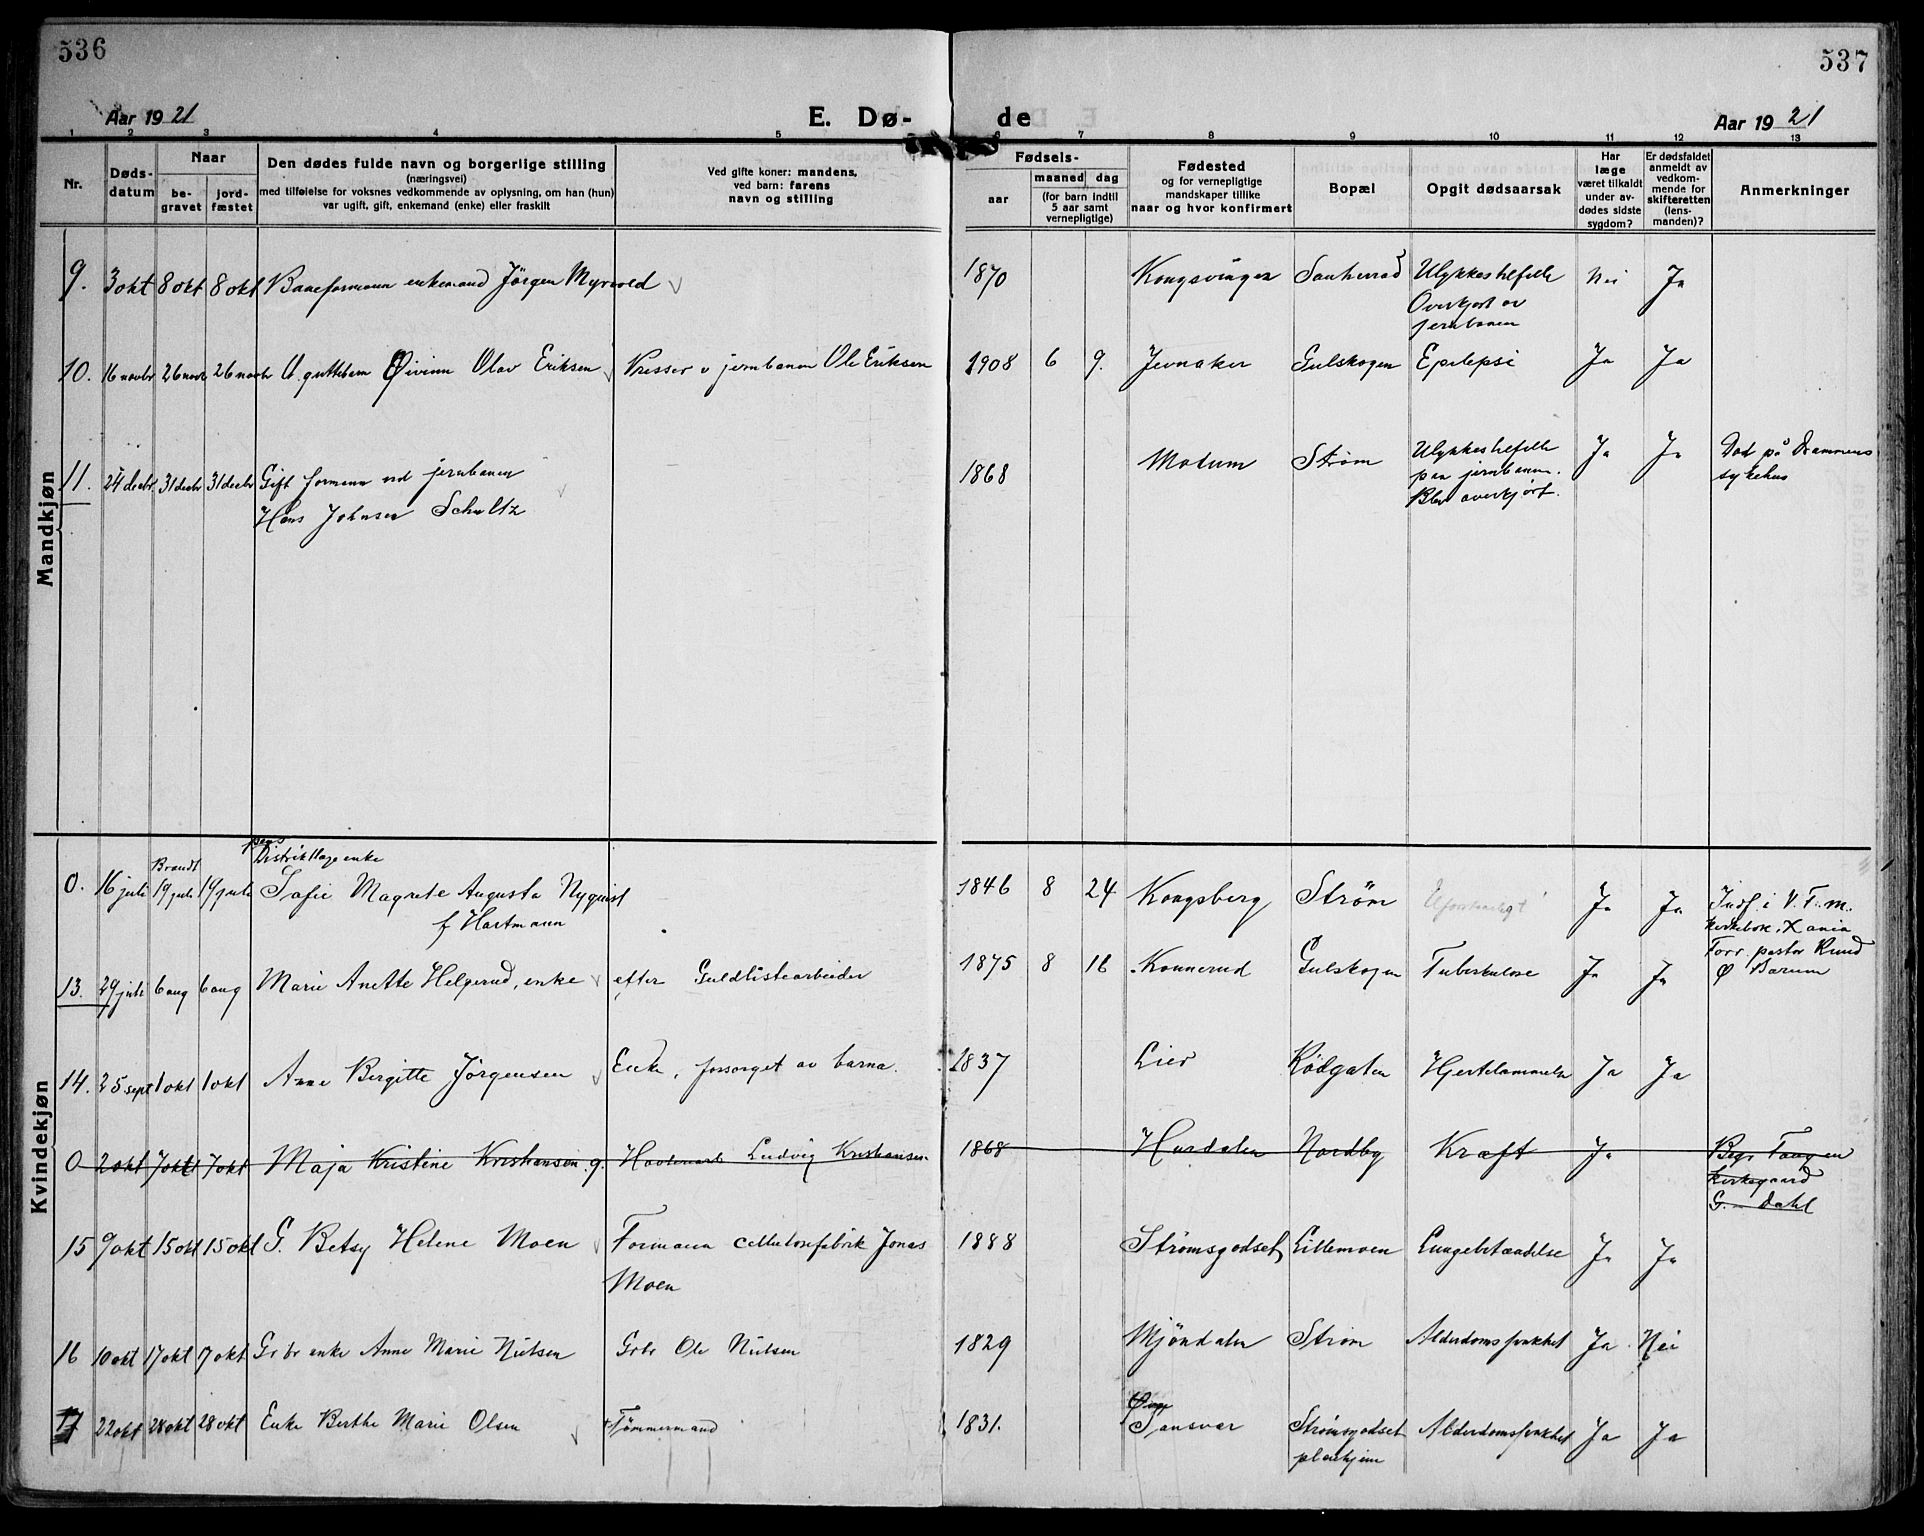 536
537
Aar 1921
E. Dø-
de
Aar 1921
1 2 3 4 5 6 7 8 9 10 11 12 13
Nr.
Døds-
datum
Naar
be-
gravet
jord-
fæstet
Den dødes fulde navn og borgerlige stilling
(næringsvei)
med tilføielse for voksnes vedkommende av oplysning, om han (hun)
var ugift, gift, enkemand (enke) eller fraskilt
Ved gifte koner: mandens,
ved barn: farens
navn og stilling
Fødsels-
aar
maaned dag
(for barn indtil
5 aar samt
vernepligtige)
Fødested
og for vernepligtige
mandskaper tillike
naar og hvor konfirmert
Bopæl
Opgit dødsaarsak
Har
læge
været tilkaldt
under av-
dødes sidste
sygdom?
Er dødsfaldet
anmeldt av
vedkom-
mende for
skifteretten
(lens-
manden)?
Anmerkninger
Mandkjøn
9. 3 okt 8 okt 8 okt Baneformann enkemand Jörgen Myrvold 1870 Kongsvinger Sauherad Ulykkestilfelle Nei Ja
Overkjort av
jernbanen
10. 16 novbr 26 novbr 26 novbr U. guttebarn Øivinn Olav Eriksen Presser v jernbanen Ole Eriksen 1908 6 9. Jevnaker Gulskogen Epilepsi Ja Ja
11. 24 decbr 31 decbr 31 decbr Gift formann ved jernbanen 1868 Modum Strøm Ulykkestilfelle Ja Ja Död på Drammens
Hans Johnsen Schultz paa jernbanen. sykehus
Blev overkjört.
Kvindekjøn
pens
Distriktlæge enke
Brændt
0. 16 juli 19 juli 19 juli Sofie Magrete Augusta Nyquist 1846 8 24 Kongsberg Strøm Uforstaaeligt Ja Ja Indf. i V. F. m.
f Hartmann kirkebok, X ania
Forr. pastor Ruud
13. 29 juli 6 aug 6 aug Marie Anette Helgerud, enke efter Guldlistearbeider 1875 8 16 Konnerud Gulskogen Tuberkulose Ja Ja Ø Barum
14. 25 sept 1 okt 1 okt Anne Bergitte Jörgensen Enke, forsorget av barna. 1837 Lier Rödgaten Hjertelammelse Ja Ja
0 2 okt 7 okt 7 okt Maja Kristine Kristiansen. g. Ludvig Kristiansen 1868 Hurdalen Nordby Kræft Ja Begr Tangen
kirkegaard
G. Dahl
15 9 okt 15 okt 15 okt G. Betsy Helene Moen Formann cellulosefabrik Jonas 1888 Strømsgodset Lillemoen Lungebetændelse Ja Ja
Moen
16 10 okt 17 okt 17 okt Grbr enke Anne Marie Nielsen Grbr Ole Nielsen 1829 Mjöndalen Strøm Alderdomssvakhet Ja Nei
17 22 okt 28 okt 28 okt Enke Berthe Marie Olsen Tømmermand 1831. Øvre Strömsgodset Alderdomssvakhet Ja Ja
Sansver pleiehjem